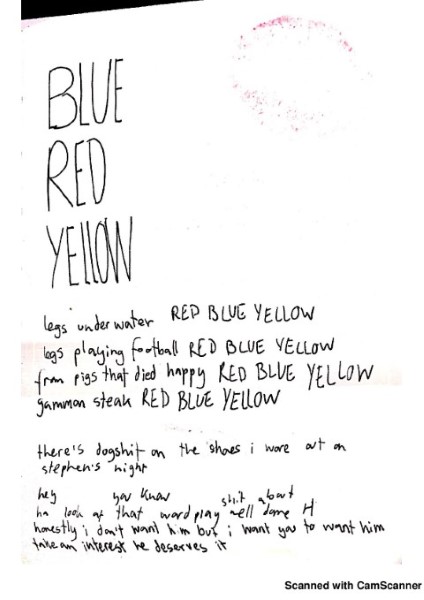 BLUE
RED
YELLOW
legs under water RED BLUE YELLOW
legs playing football RED BLUE YELLOW
from pigs that died happy RED BLUE YELLOW
gammon steak RED BLUE YELLOW
there's dogshit on the shoes i wore out on
stephen's night
hey you know shit about
ha look at that wordplay well done H
honestly i don't want him but i want you to want him
take an interest he deserves it
Scanned with CamScanner